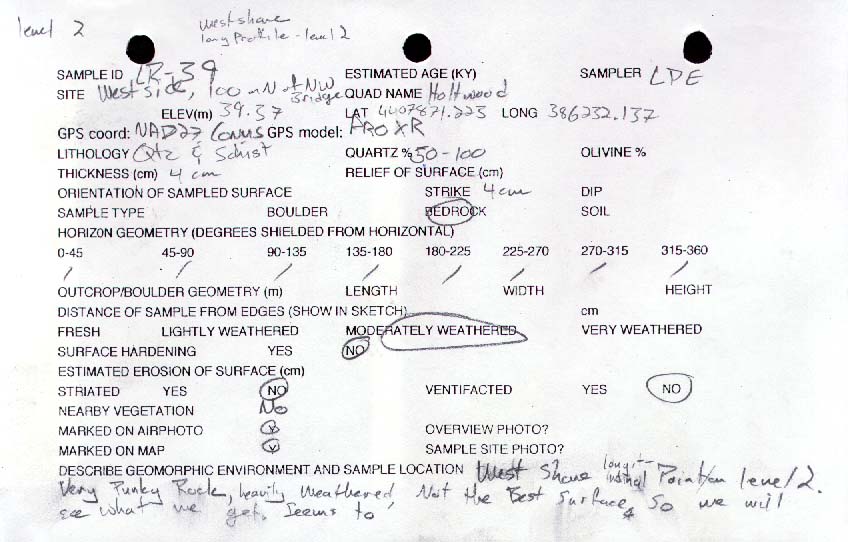 level 2
West shore
long Profile - level 2
SAMPLE ID LR-39 ESTIMATED AGE (KY) SAMPLER LDE
SITE West side, 100 m N of NW Bridge QUAD NAME Holtwood
ELEV(m) 39.37 LAT 4407871.223 LONG 386232.137
GPS coord: NAD27 Conus GPS model: PRO XR
LITHOLOGY Qtz & Schist QUARTZ % 50-100 OLIVINE %
THICKNESS (cm) 4 cm RELIEF OF SURFACE (cm)
ORIENTATION OF SAMPLED SURFACE STRIKE 4cm DIP
SAMPLE TYPE BOULDER BEDROCK SOIL
HORIZON GEOMETRY (DEGREES SHIELDED FROM HORIZONTAL)
0-45 45-90 90-135 135-180 180-225 225-270 270-315 315-360
/ / / / / / / /
OUTCROP/BOULDER GEOMETRY (m) LENGTH WIDTH HEIGHT
DISTANCE OF SAMPLE FROM EDGES (SHOW IN SKETCH) cm
FRESH LIGHTLY WEATHERED MODERATELY WEATHERED VERY WEATHERED
SURFACE HARDENING YES NO
ESTIMATED EROSION OF SURFACE (cm)
STRIATED YES NO VENTIFACTED YES NO
NEARBY VEGETATION No
MARKED ON AIRPHOTO OVERVIEW PHOTO?
MARKED ON MAP SAMPLE SITE PHOTO?
DESCRIBE GEOMORPHIC ENVIRONMENT AND SAMPLE LOCATION West Shore longitudinal Point on level 2.
Very Punky Rock, heavily weathered, Not the Best Surface, so we will
see what we get. Seems to